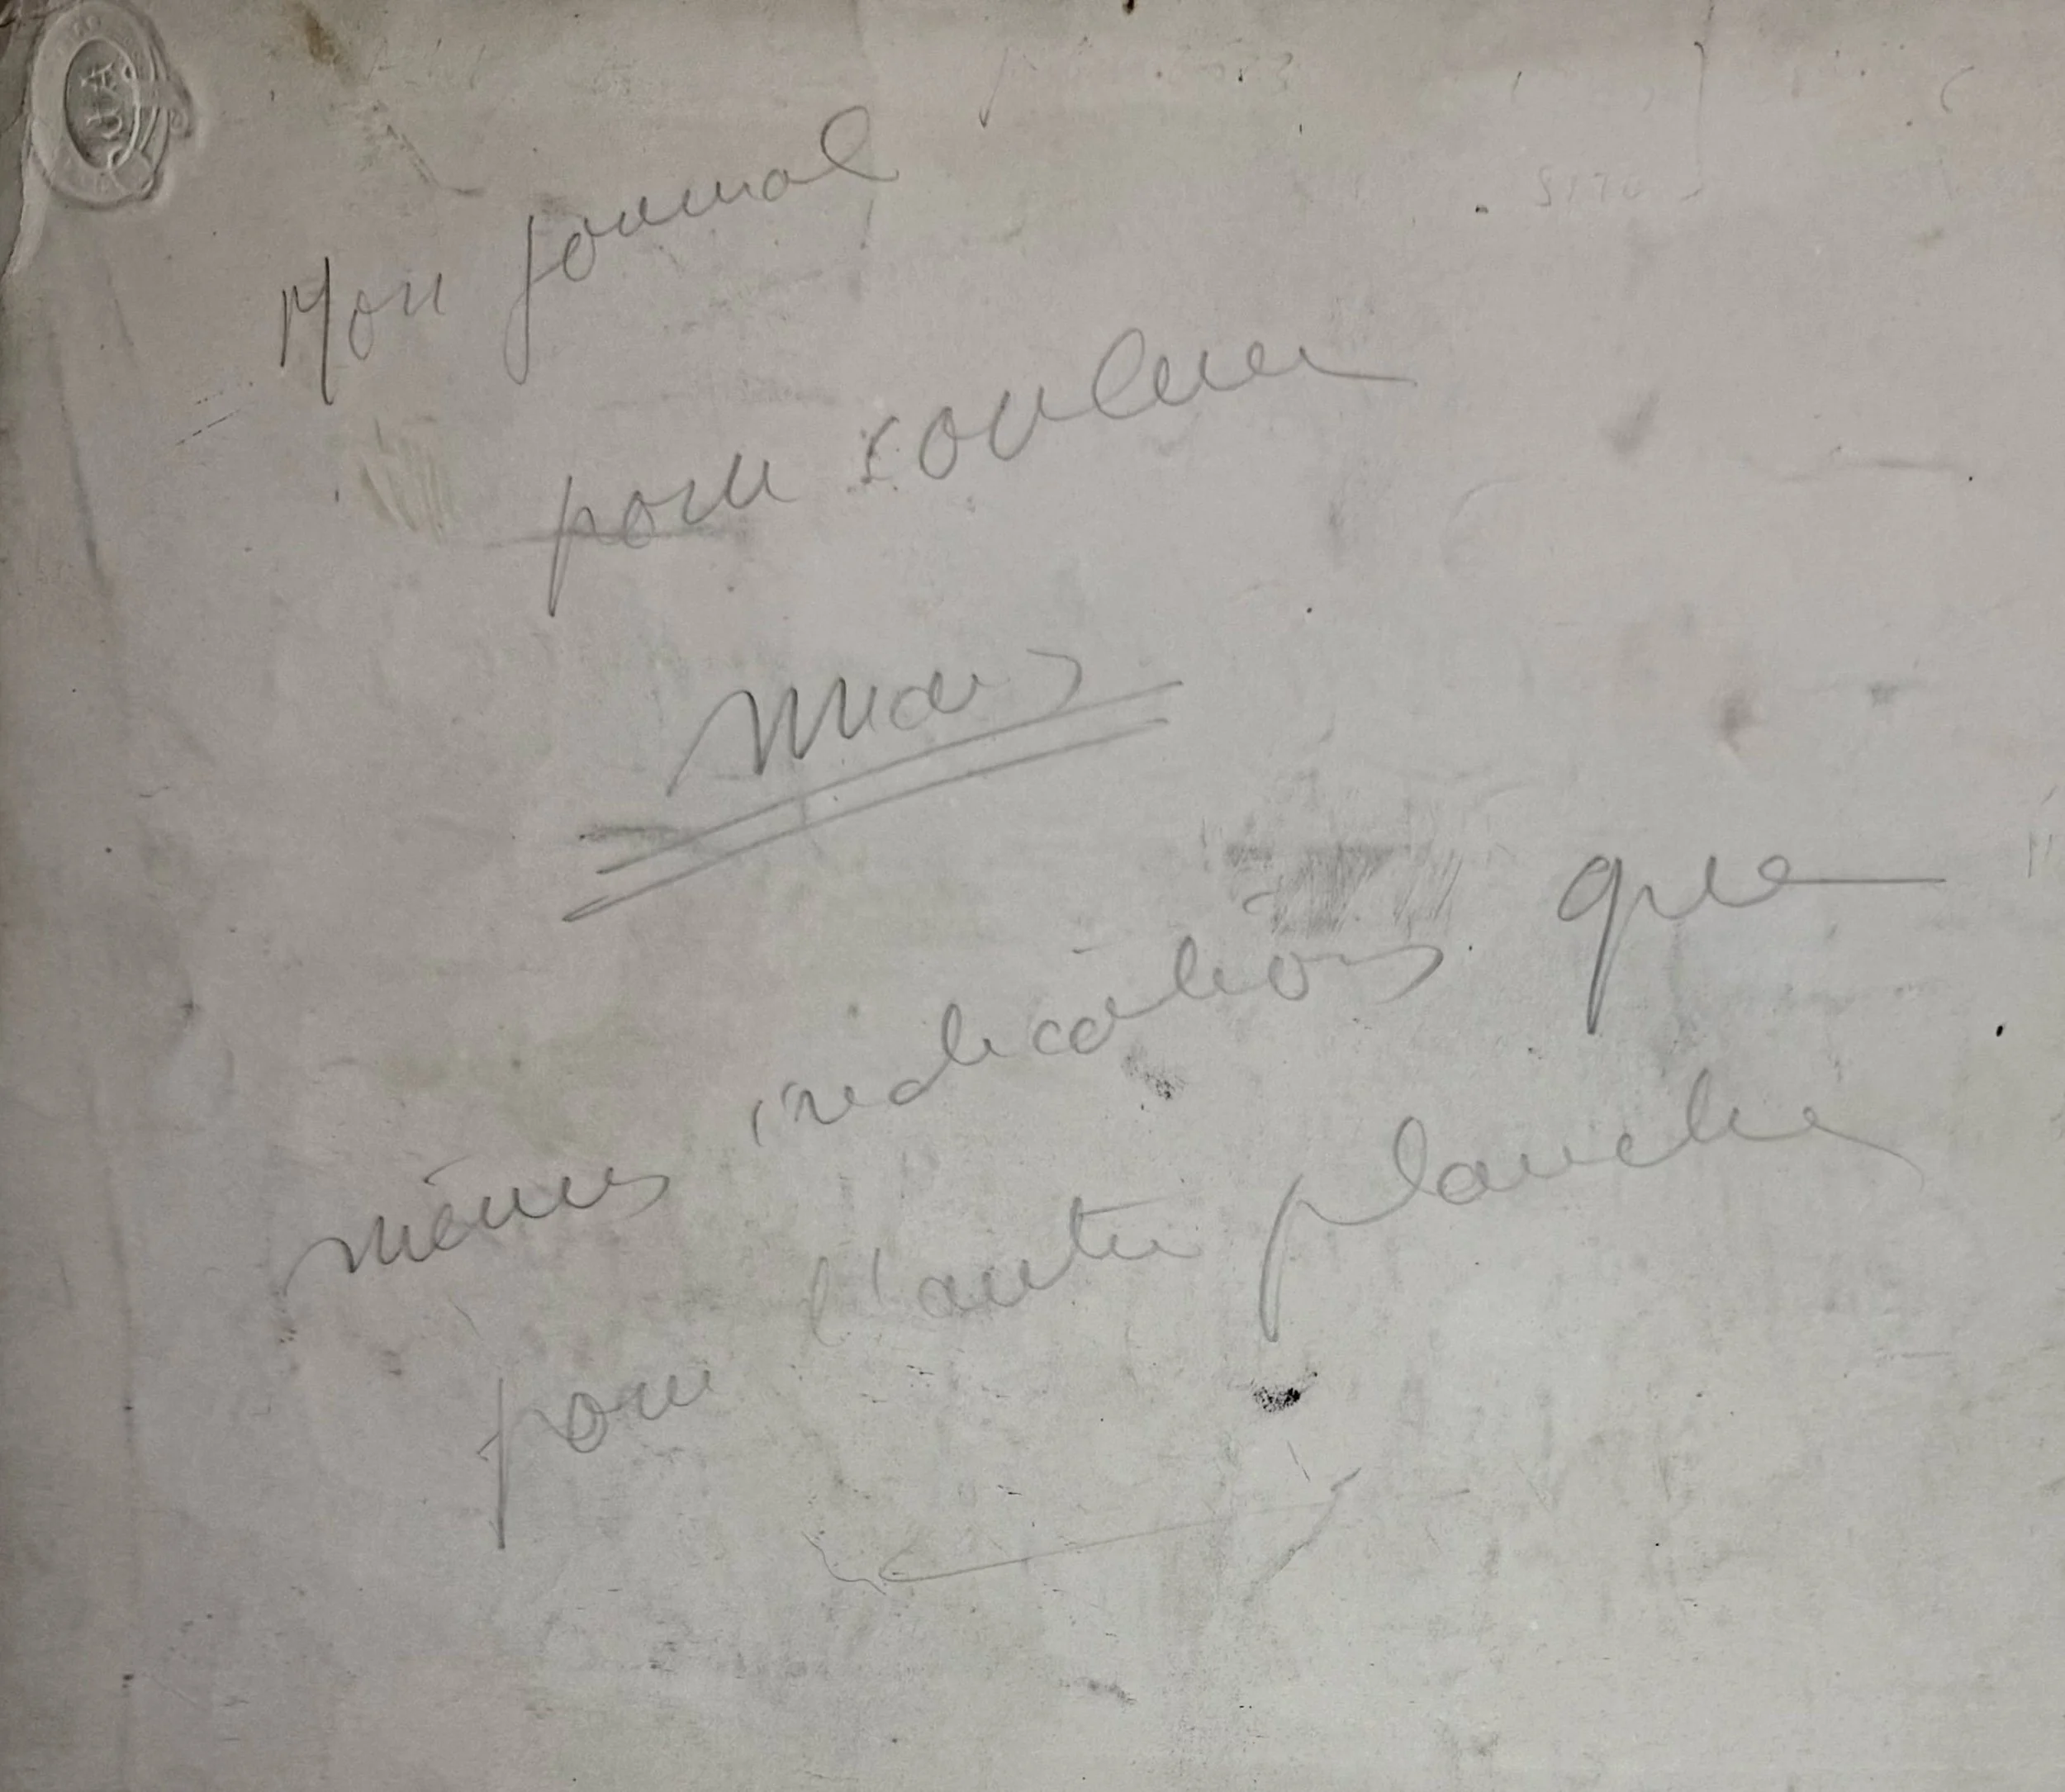 Mon journal
pour couleur
Mars
mêmes indications que
pour l'autre planche